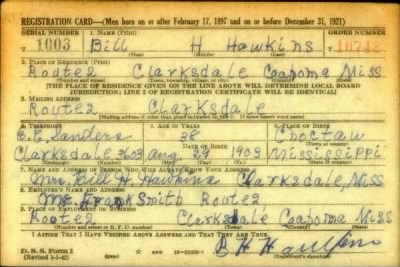 REGISTRATION CARD—(Men born on or after February 17, 1897 and on or before December 31, 1921)
SERIAL NUMBER 1. NAME (Print) ORDER NUMBER
T 1003 Bill H Hawkins
(First) (Middle) (Last)
2. PLACE OF RESIDENCE (Print)
Route 2 Clarksdale Coahoma Miss
(Number and street) (Town, township, village, or city) (County) (State)
[THE PLACE OF RESIDENCE GIVEN ON THE LINE ABOVE WILL DETERMINE LOCAL BOARD
JURISDICTION; LINE 2 OF REGISTRATION CERTIFICATE WILL BE IDENTICAL]
3. MAILING ADDRESS
Route 2 Clarksdale
4. TELEPHONE 5. AGE IN YEARS 6. PLACE OF BIRTH
Sanders 38 Choctaw
DATE OF BIRTH
Clarksdale 3603 Aug 1903 Mississippi
7. NAME AND ADDRESS OF PERSON WHO WILL ALWAYS KNOW YOUR ADDRESS
Mrs. Bill H. Hawkins Clarksdale, Miss
8. EMPLOYER'S NAME AND ADDRESS
Mr. Frank Smith Route 2
9. PLACE OF EMPLOYMENT OR BUSINESS
Route 2 Clarksdale Coahoma Miss
(Number and street or R. F. D. number) (Town) (County) (State)
I AFFIRM THAT I HAVE VERIFIED ABOVE ANSWERS AND THAT THEY ARE TRUE.
D. S. S. Form 1
B H Hawkins